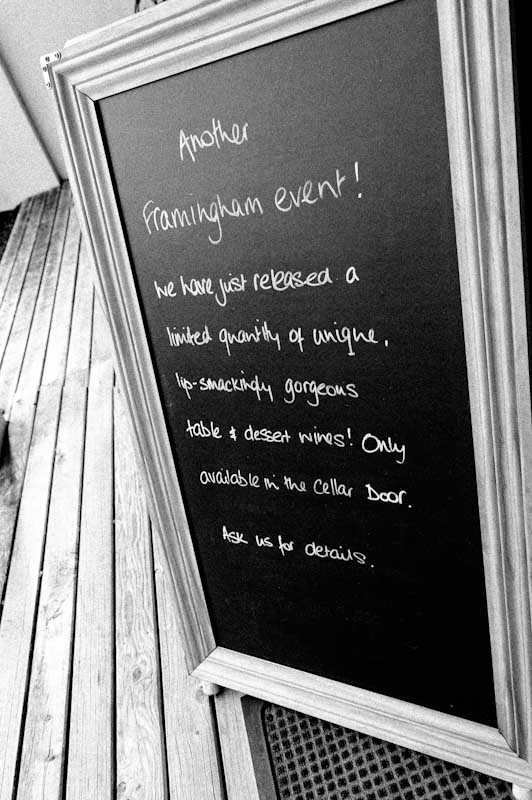 Another
Framingham event!
We have just released a
limited quantity of unique,
lip-smackingly gorgeous
table & dessert wines! Only
available in the Cellar Door.
Ask us for details.